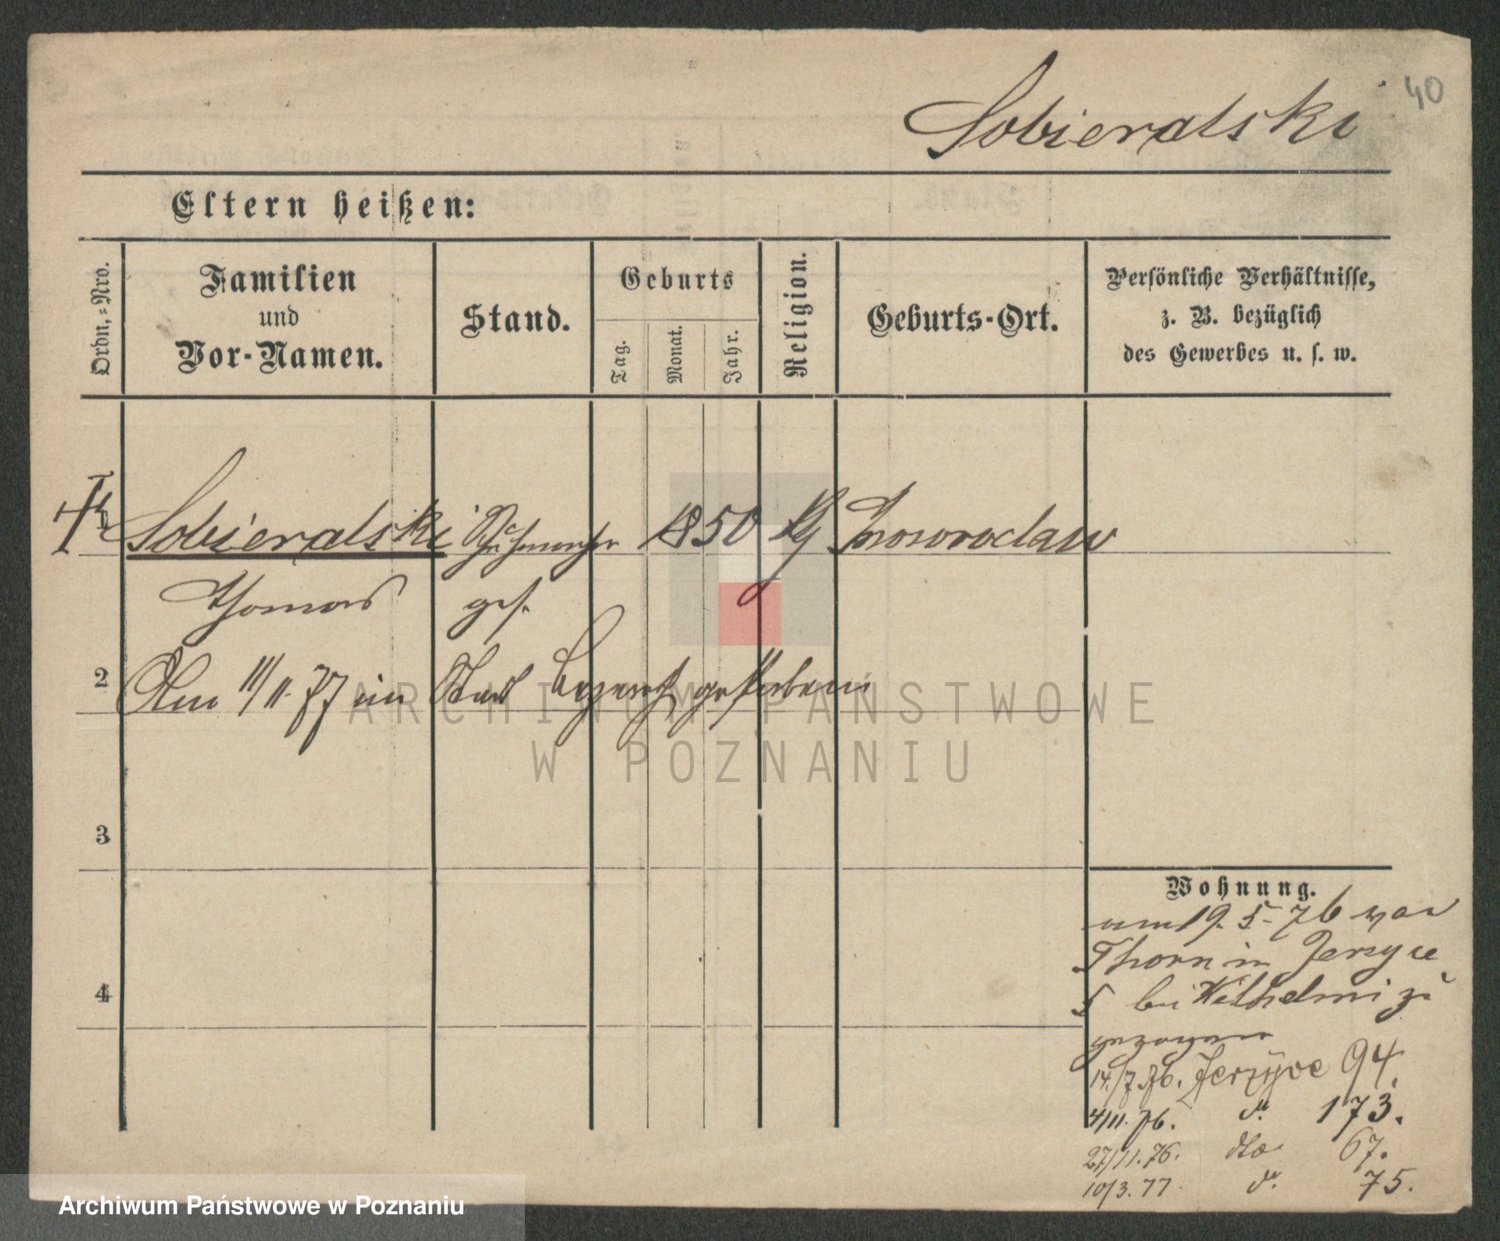 40
Sobieralski
Eltern heißen:
Ordn.-Nro.
Familien
und
Vor-Namen.
Stand.
Geburts
Tag.
Monat.
Jahr.
Religion.
Geburts-Ort.
Persönliche Verhältnisse,
z. B. bezüglich
des Gewerbes u. s. w.
Sobieralski 1850 Inowroclaw
Thomas ges.
2 Am 11/11. 77 im gestorben
3
4
Wohnung.
am 19. 5. 76 von
Thorn in Jerzyce
5 bei Wilhelmi zu
gezogen
14/7. 76. Jerzyce 94.
4/11. 76. do. 173.
27/11. 76. dto 67.
10/3. 77. do. 75.
ARCHIWUM PAŃSTWOWE
W POZNANIU
Archiwum Państwowe w Poznaniu